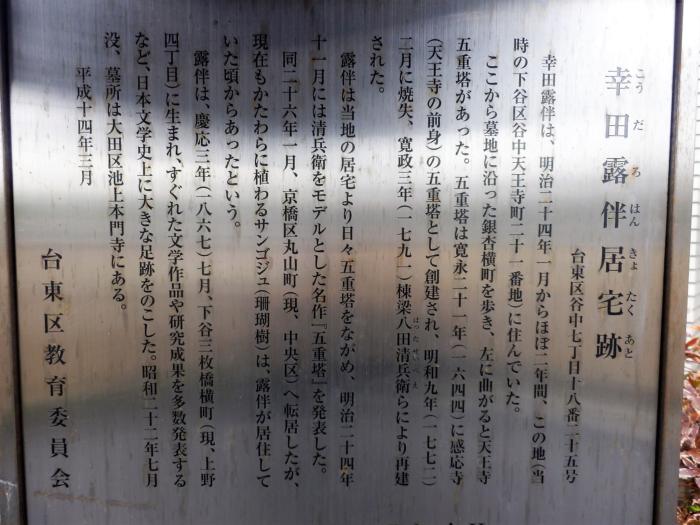 幸田露伴居宅跡
こうだろはんきょたくあと
台東区谷中七丁目十八番二十五号
幸田露伴は、明治二十四年一月からほぼ二年間、この地(当
時の下谷区谷中天王寺町二十一番地)に住んでいた。
ここから墓地に沿った銀杏横町を歩き、左に曲がると天王寺
五重塔があった。五重塔は寛永二十一年(一六四四)に感応寺
(天王寺の前身)の五重塔として創建され、明和九年(一七七二)
二月に焼失、寛政三年(一七九一)棟梁八田清兵衛らにより再建
はったせいべえ
された。
露伴は当地の居宅より日々五重塔をながめ、明治二十四年
十一月には清兵衛をモデルとした名作『五重塔』を発表した。
同二十六年一月、京橋区丸山町(現、中央区)へ転居したが、
現在もかたわらに植わるサンゴジュ(珊瑚樹)は、露伴が居住して
いた頃からあったという。
露伴は、慶応三年(一八六七)七月、下谷三枚橋横町(現、上野
四丁目)に生まれ、すぐれた文学作品や研究成果を多数発表する
など、日本文学史上に大きな足跡をのこした。昭和二十二年七月
没、墓所は大田区池上本門寺にある。
平成十四年三月
台東区教育委員会